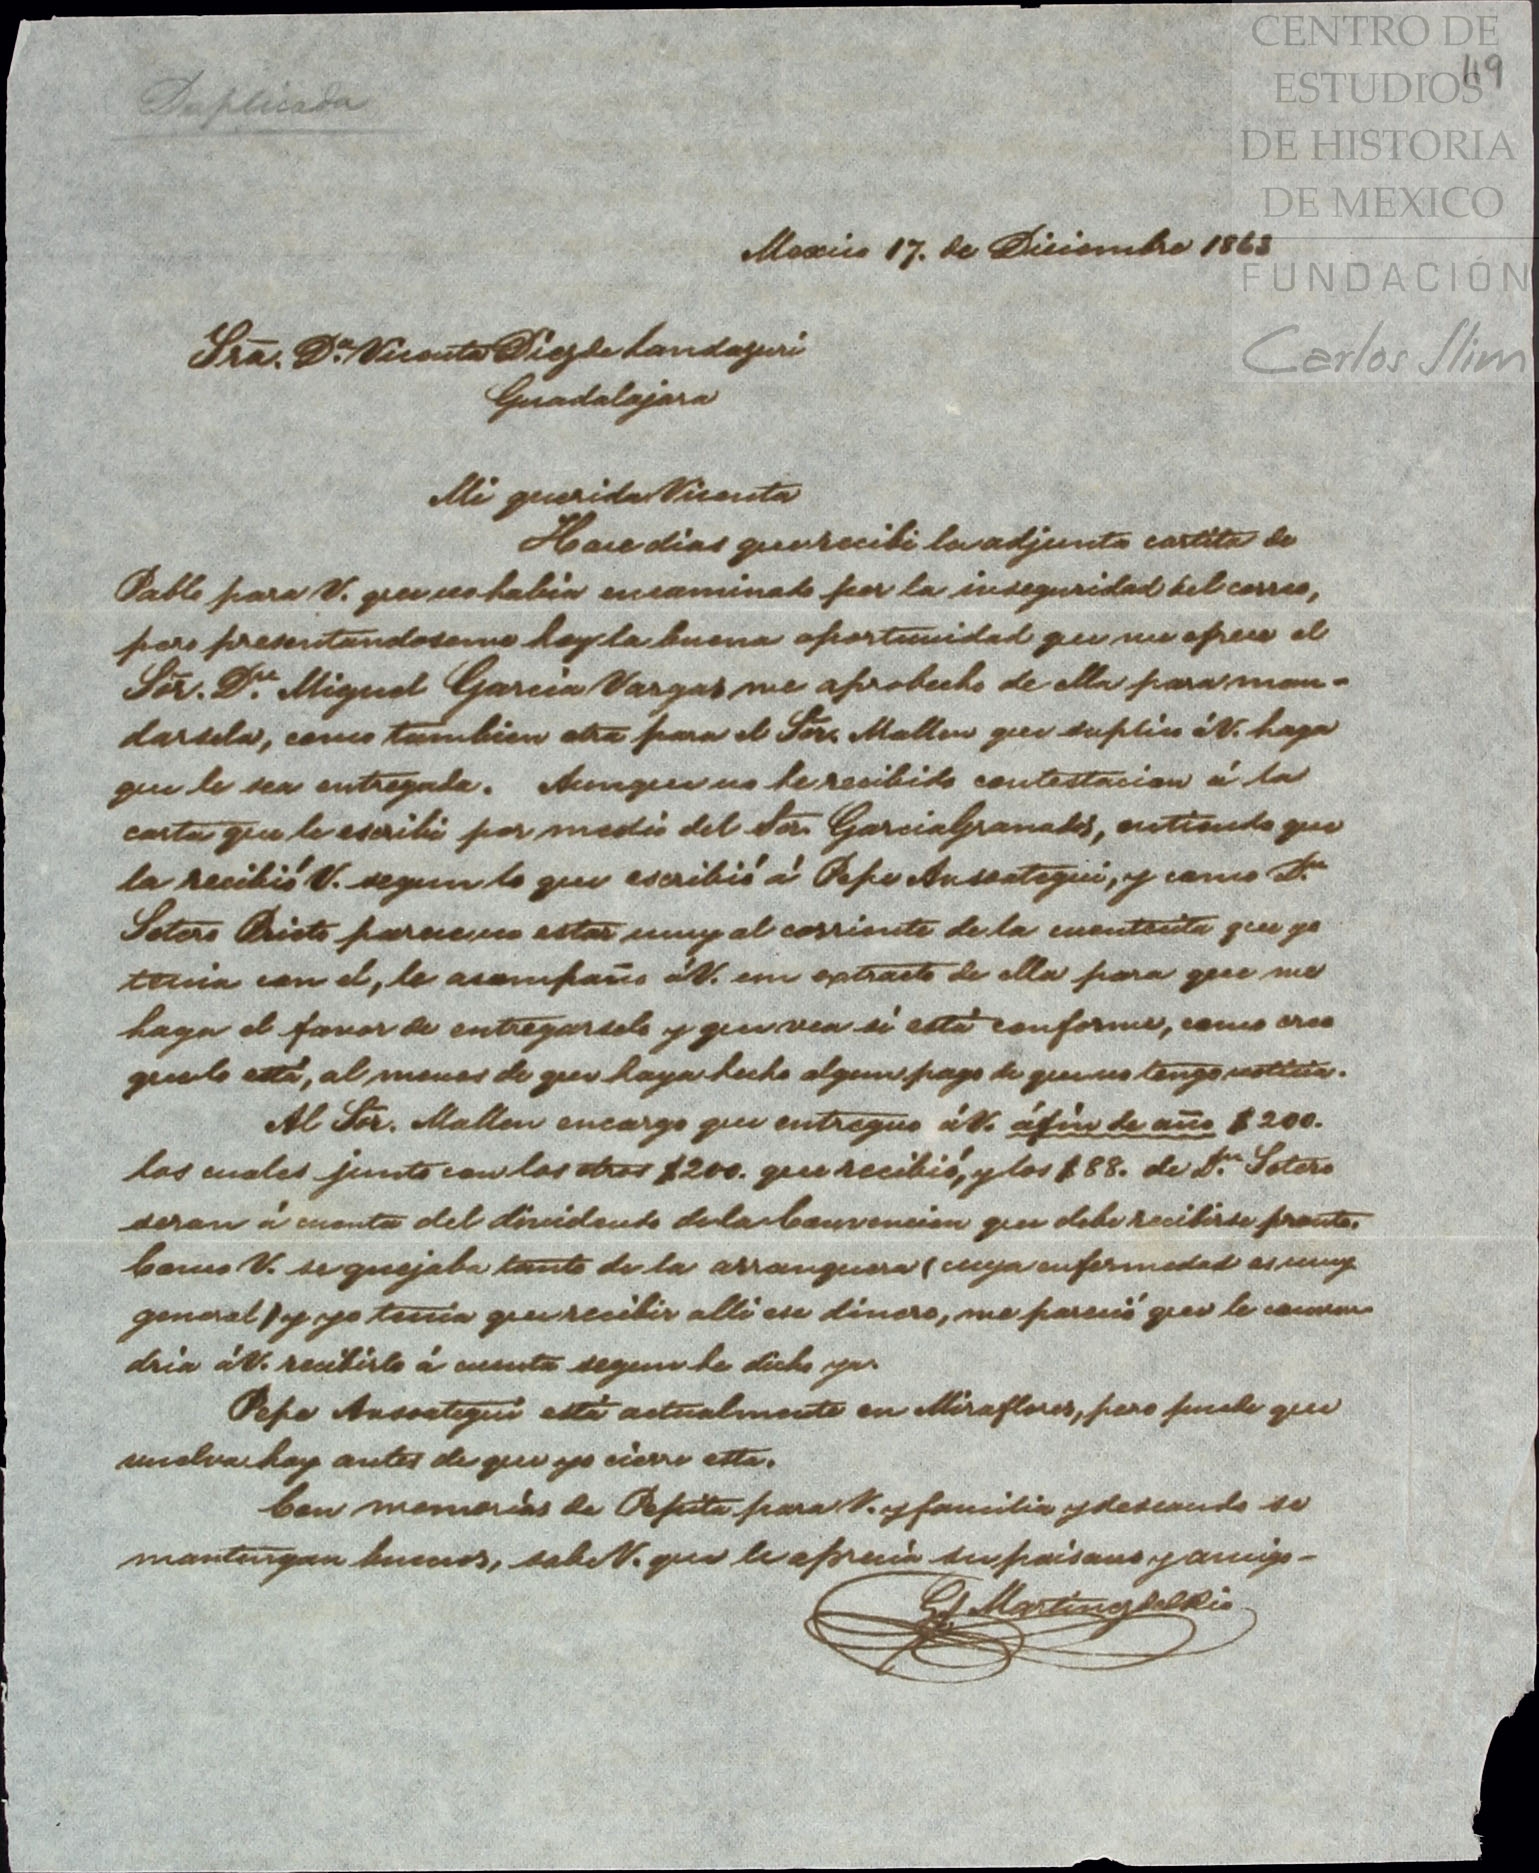 CENTRO DE
ESTUDIOS
DE HISTORIA
DE MEXICO
FUNDACIÓN
Carlos Slim
49
Duplicada
Mexico 17. de Diciembre 1863
Sra. Da. Vicenta Diez de Landazuri
Guadalajara
Mi querida Vicenta
Hace dias que recibi la adjunta cartita de
Pablo para V. que no habia encaminado por la inseguridad del correo,
pero presentandoseme hoy la buena oportunidad que me ofrece el
Sor. Dn. Miguel Garcia Vargas me aprobecho de ella para man-
darsela, como tambien otra para el Sor. Mallen que suplico á V. haga
que le sea entregada. Aunque no he recibido contestacion á la
carta que le escribi por medio del Sor. Garcia Granados, entiendo que
la recibió V. segun lo que escribió á Pepe Ansoategui, y como Dn.
Sotero Prieto parece no estar muy al corriente de la cuentecita que yo
tenia con el, le acompaño á V. un extracto de ella para que me
haga el favor de entregarselo y que vea si está conforme, como creo
que lo está, al menos de que haya hecho algun pago de que no tengo noticia.
Al Sor. Mallen encargo que entregue á V. á fin de año $200.
los cuales junto con los otros $200. que recibió, y los $88. de Dn. Sotero
seran á cuenta del dividendo de la Convencion que debe recibirse pronto.
Como V. se quejaba tanto de la arranquera (cuya enfermedad es muy
general) y yo tenia que recibir alli ese dinero, me pareció que le conven-
dria á V. recibirlo á cuenta segun he dicho ya.
Pepe Ansoategui está actualmente en Miraflores, pero puede que
vuelva hoy antes de que yo cierre esta.
Con memorias de Pepita para V. y familia y deseando se
mantengan buenos, sabe V. que le aprecia su paisano y amigo-
Martinez del Rio